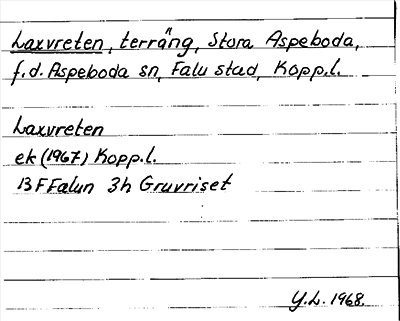 Laxvreten, terräng, Stora Aspeboda,
f.d. Aspeboda sn, Falu stad, Kopp.l.
Laxvreten
ek (1967) Kopp.l.
13 F Falun 3h Gruvriset
Y.L. 1968.